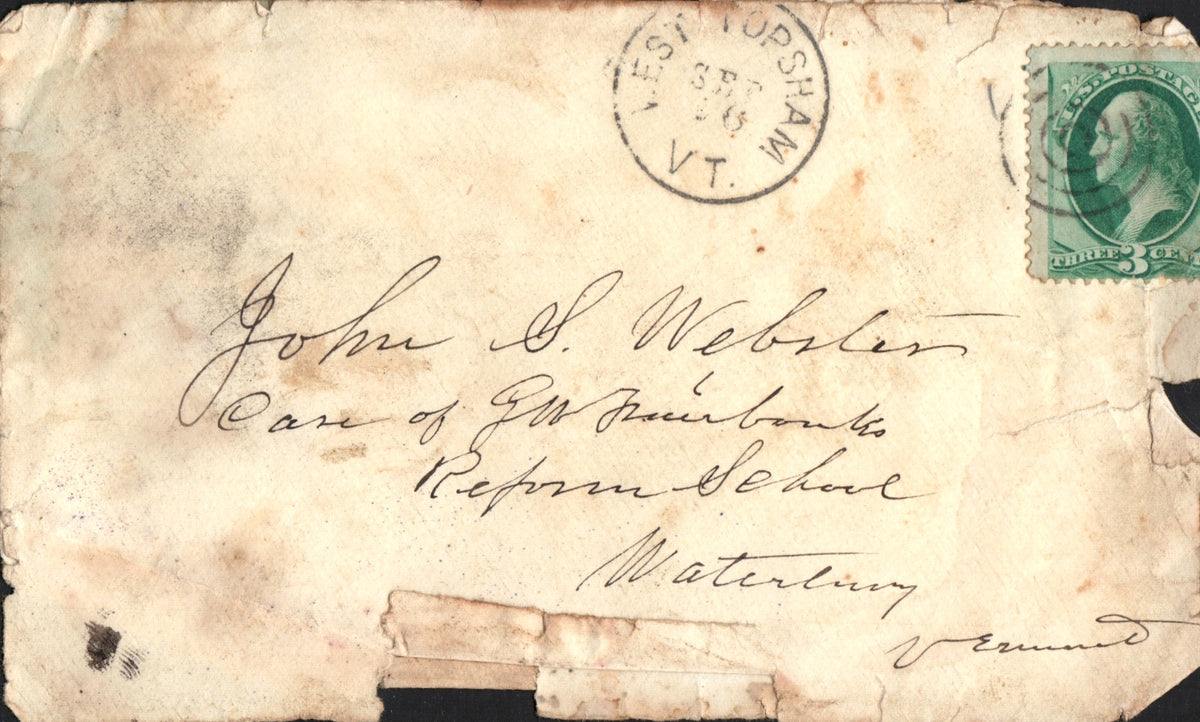 WEST TOPSHAM
SEP
VT.
U.S. POSTAGE
THREE 3 CENT
John S. Webster
Care of G W Fairbanks
Reform School
Waterbury
Vermont